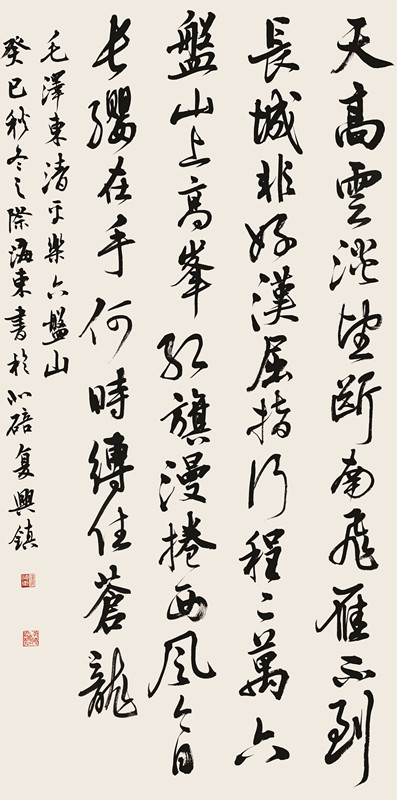 天高雲淡望斷南飛雁不到
長城非好漢屈指行程二萬六
盤山上高峯紅旗漫捲西風今日
長纓在手何時縛住蒼龍
毛澤東清平樂六盤山
癸巳秋冬之際海東書於北碚复興鎮